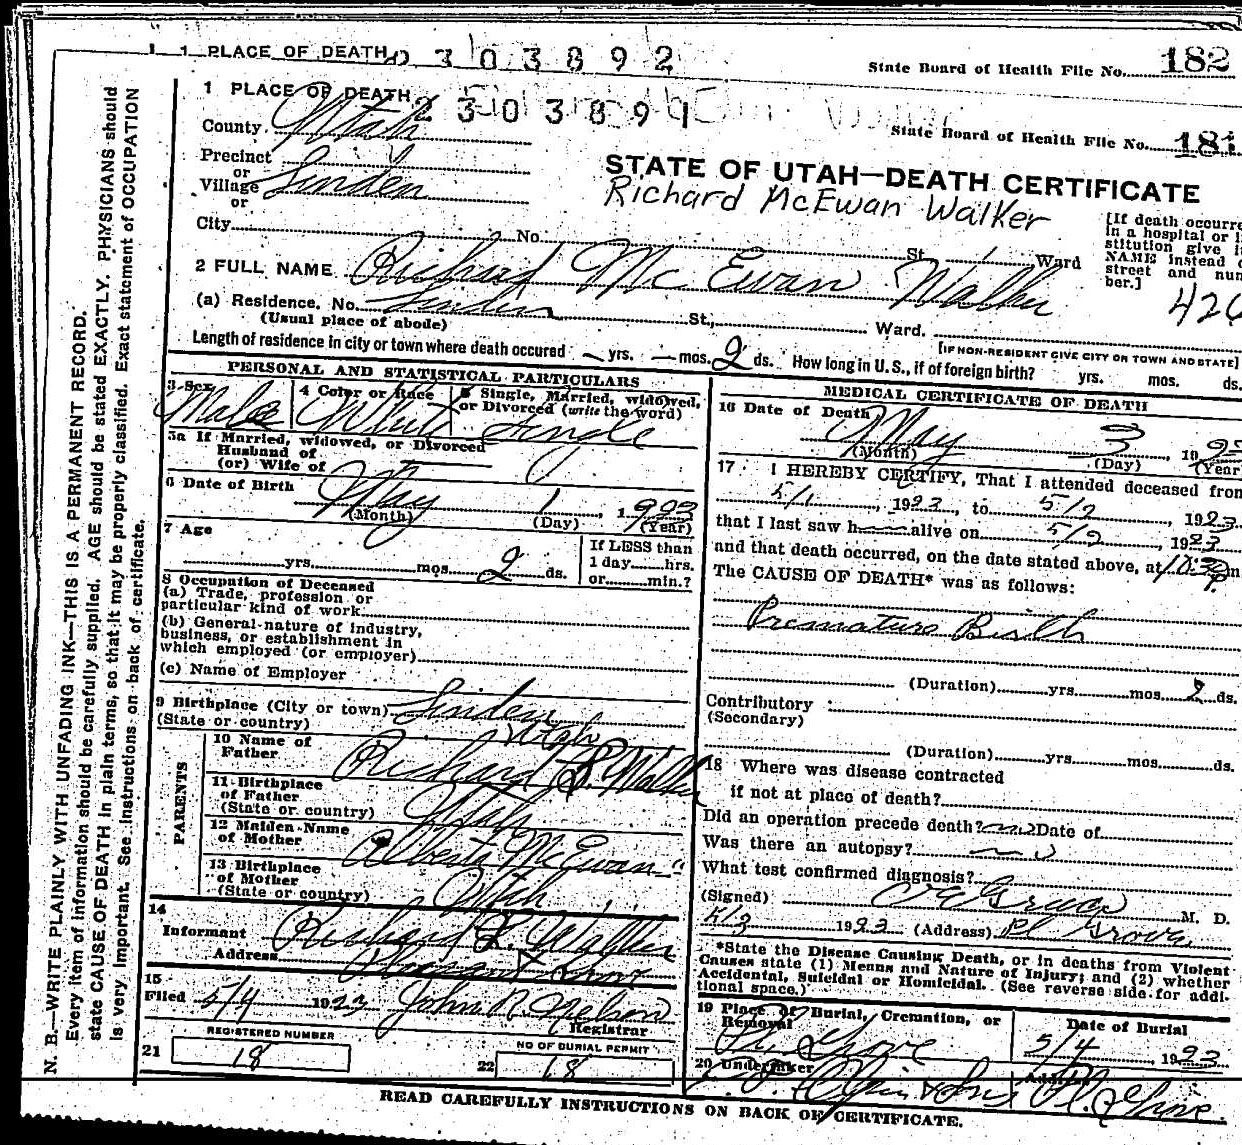 1 PLACE OF DEATH 0 3 0 3 8 9 2
State Board of Health File No. 182
1 PLACE OF DEATH 2 3 0 3 8 9 1
County Utah
State Board of Health File No. 181
Precinct
or
Village Linden
or
City No. St. Ward
STATE OF UTAH—DEATH CERTIFICATE
Richard McEwan Walker
[If death occurre
in a hospital or i
stitution give it
NAME instead o
street and num
ber.]
426
2 FULL NAME Richard Mc Ewan Walker
(a) Residence. No. Linden St., Ward.
(Usual place of abode)
[IF NON-RESIDENT GIVE CITY OR TOWN AND STATE]
Length of residence in city or town where death occured — yrs. — mos. 2 ds. How long in U. S., if of foreign birth? yrs. mos. ds.
PERSONAL AND STATISTICAL PARTICULARS
3 Sex Male
4 Color or Race White
5 Single, Married, widowed,
or Divorced (write the word)
Single
5a If Married, widowed, or Divorced
Husband of
(or) Wife of
6 Date of Birth May 1, 1923
(Month) (Day) (Year)
7 Age
yrs. mos. 2 ds.
If LESS than
1 day hrs.
or min.?
8 Occupation of Deceased
(a) Trade, profession or
particular kind of work
(b) General nature of industry,
business, or establishment in
which employed (or employer)
(c) Name of Employer
9 Birthplace (City or town) Linden
(State or country) Utah
PARENTS
10 Name of
Father Richard L. Walker
11 Birthplace
of Father
(State or country) Utah
12 Maiden Name
of Mother Alberta McEwan
13 Birthplace
of Mother
(State or country) Utah
14
Informant Richard L. Walker
Address Pleasant Grove
15
Filed 5/4 1923 John R. Nelson
Registrar
REGISTERED NUMBER
21 18
NO OF BURIAL PERMIT
22 18
MEDICAL CERTIFICATE OF DEATH
16 Date of Death
May 3, 192
(Month) (Day) (Year
17 I HEREBY CERTIFY, That I attended deceased from
5/1, 1923, to 5/2, 1923
that I last saw h alive on 5/2, 1923
and that death occurred, on the date stated above, at 10:30 P. m
The CAUSE OF DEATH* was as follows:
Premature Birth
(Duration) yrs. mos. 2 ds.
Contributory :
(Secondary)
(Duration) yrs. mos. ds.
18 Where was disease contracted
if not at place of death?
Did an operation precede death? no Date of
Was there an autopsy? no
What test confirmed diagnosis?
(Signed) M. D.
1923 (Address) Pl Grove
*State the Disease Causing Death, or in deaths from Violent
Causes state (1) Means and Nature of Injury; and (2) whether
Accidental, Suicidal or Homicidal. (See reverse side for addi-
tional space.)
19 Place of Burial, Cremation, or
Removal
Pl. Grove
Date of Burial
5/4, 1923
20 Undertaker
Address
Pl. Grove
READ CAREFULLY INSTRUCTIONS ON BACK OF CERTIFICATE.
N. B.—WRITE PLAINLY WITH UNFADING INK—THIS IS A PERMANENT RECORD.
Every item of information should be carefully supplied. AGE should be stated EXACTLY. PHYSICIANS should
state CAUSE OF DEATH in plain terms, so that it may be properly classified. Exact statement of OCCUPATION
is very important. See instructions on back of certificate.